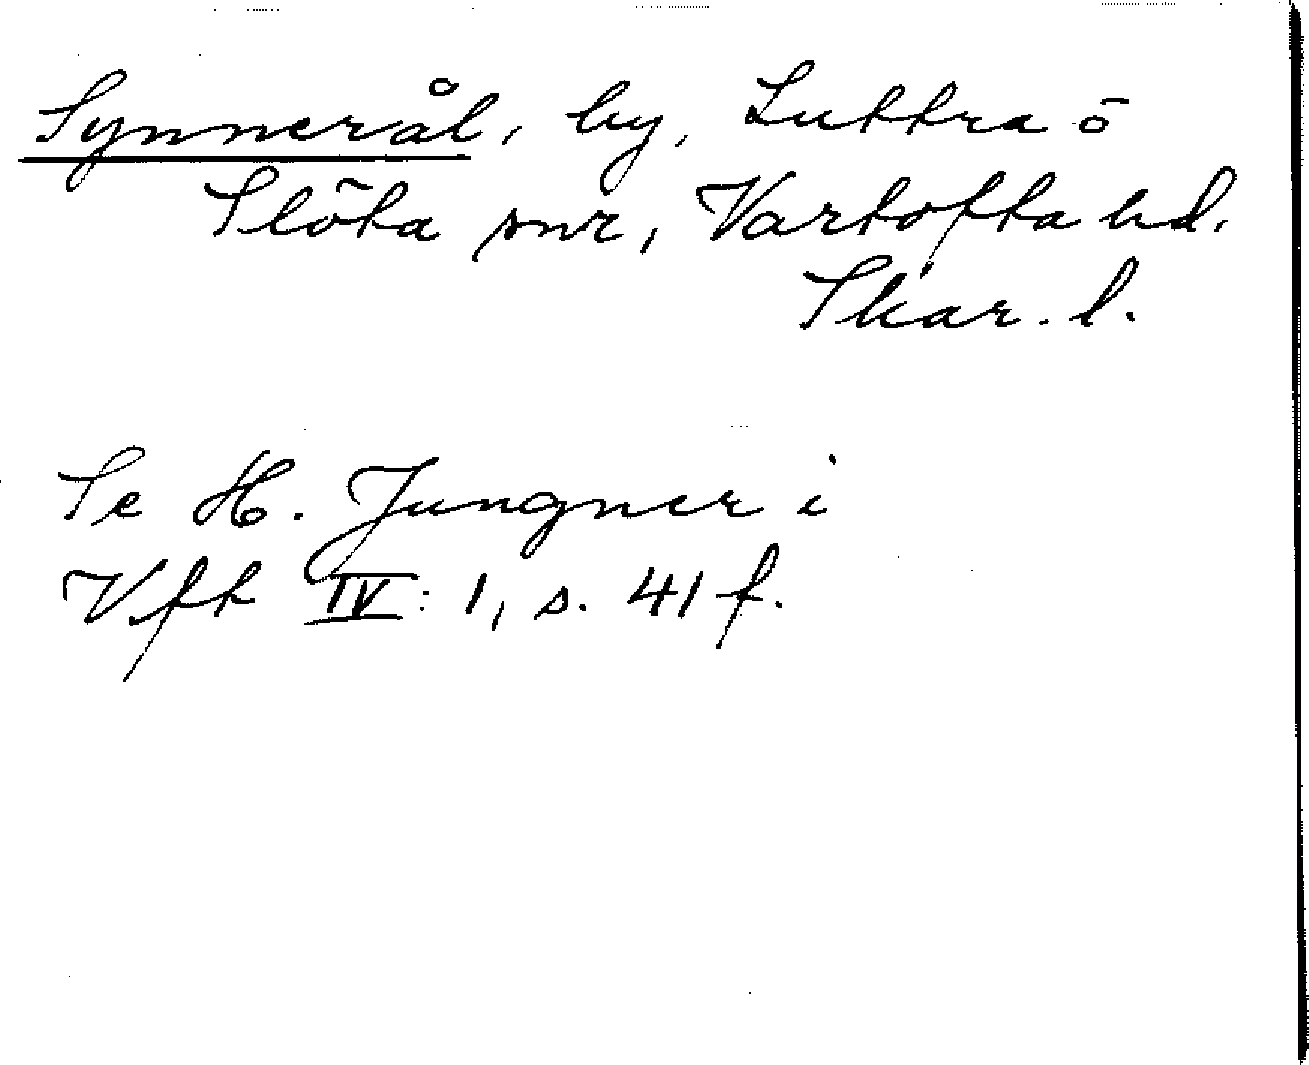 Synnerål, by, Luttra o
Slöta snr, Vartofta hd.
Skar. l.
Se H. Jungner i
Vfft IV: 1, s. 41 f.